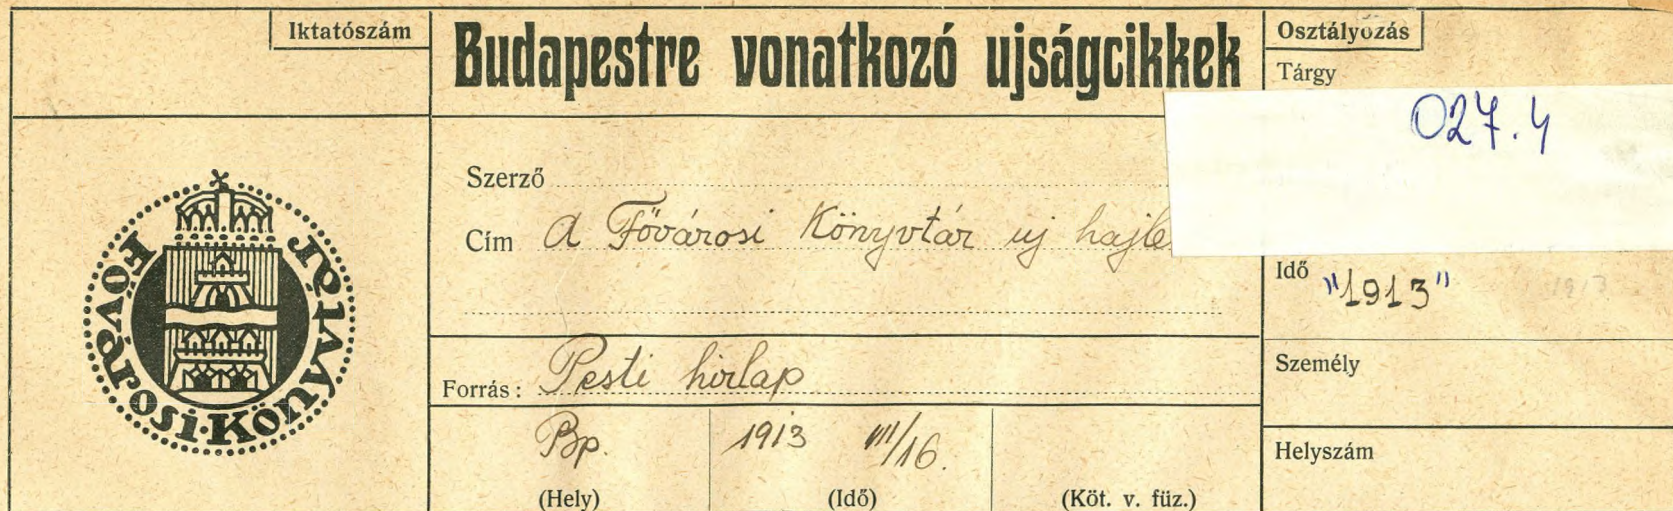 Iktatószám
Budapestre vonatkozó ujságcikkek
Osztályozás
Tárgy
027.4
Fővárosi·Könyvtár
Szerző
Cím A Fővárosi Könyvtár uj hajle
Idő "1913"
1913
Forrás: Pesti hirlap
Személy
Bp. 1913 III/16.
Helyszám
(Hely) (Idő) (Köt. v. füz.)